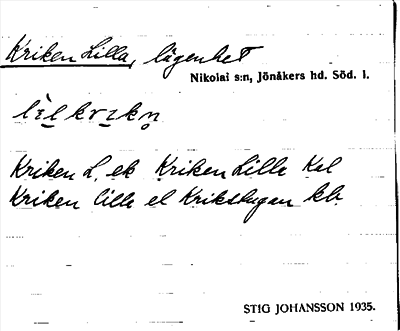 Kriken Lilla, lägenhet
Nikolai s:n, Jönåkers hd. Söd. l.
Kriken L. ek Kriken Lille Kal
Kriken lille el Krikstugan kb.
STIG JOHANSSON 1935.